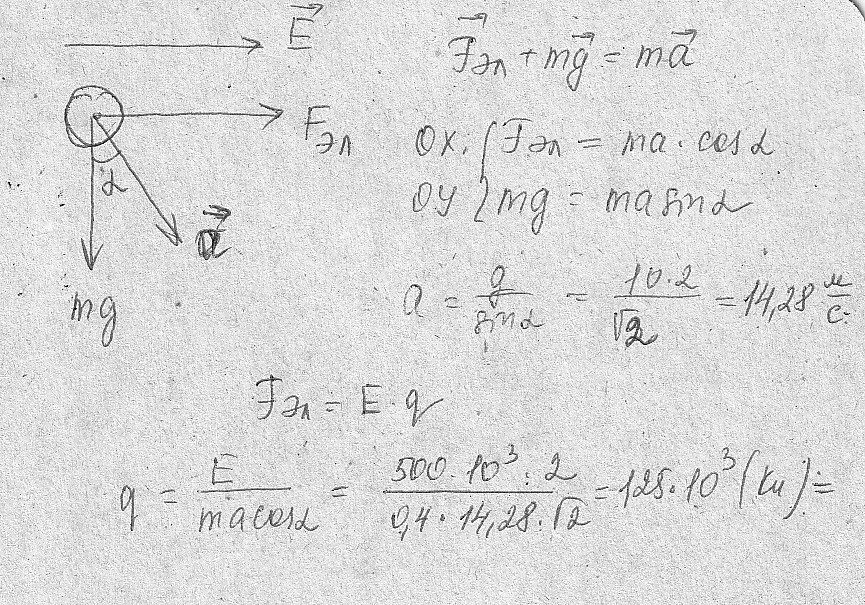 E⃗
F⃗эл + mg⃗ = ma⃗
Fэл
α
a⃗
mg
OX: { Fэл = ma · cos α
OY { mg = ma sin α
a = g / sin α = 10·2 / √2 = 14,28 м/с
Fэл = E · q
q = E / ma cos α = 500·10³·2 / 0,4·14,28·√2 = 125·10³ (Кл) =